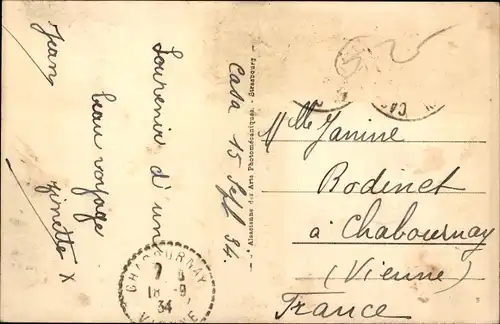 Casa 15 Sept 34.
Souvenir d'un
beau voyage
Jean
Ginette X
Alsacienne des Arts Photomécaniques - Strasbourg
Mlle Janine
Bodinet
à Chabournay
(Vienne)
France
CHABOURNAY
18 - 9
34
VIENNE